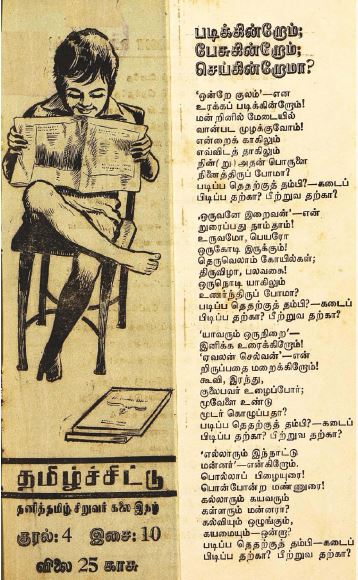 படிக்கின்றோம்;
பேசுகின்றோம்;
செய்கின்றோமா?
‘ஒன்றே குலம்’—என
உரக்கப் படிக்கின்றோம்!
மன்றினில் மேடையில்
வான்பட முழக்குவோம்!
என்றைக் காகிலும்
எவ்விடத் தாகிலும்
நின்(று) அதன் பொருளை
நினைத்திருப் போமா?
படிப்ப தெதற்குத் தம்பி?—கடைப்
பிடிப்ப தற்கா? பீற்றுவ தற்கா?
‘ஒருவனே இறைவன்’—என்
றுரைப்பது நாம்தாம்!
உருவமோ, பெயரோ
ஒருகோடி இருக்கும்!
தெருவெலாம் கோயில்கள்;
திருவிழா, பலவகை!
ஒருநொடி யாகிலும்
உணர்ந்திருப் போமா?
படிப்ப தெதற்குத் தம்பி?—கடைப்
பிடிப்ப தற்கா? பீற்றுவ தற்கா?
‘யாவரும் ஒருநிறை’—
இனிக்க உரைக்கிறோம்!
‘ஏவலன் செல்வன்’—என்
றிருப்பதை மறைக்கிறோம்!
கூவி, இரந்து,
குலைபவர் உழைப்போர்;
மூவேளை உண்டு
மூடர் கொழுப்பதா?
படிப்ப தெதற்குத் தம்பி?—கடைப்
பிடிப்ப தற்கா? பீற்றுவ தற்கா?
‘எல்லாரும் இந்நாட்டு
மன்னர்’—என்கிறோம்.
பொல்லாப் பிழையுரை!
பொன்போன்ற மண்ணுரை!
கல்லாரும் கயவரும்
கள்ளரும் மன்னரா?
கல்வியும் ஒழுங்கும்,
கயமையும்—ஒன்றா?
படிப்ப தெதற்குத் தம்பி—கடைப்
பிடிப்ப தற்கா? பீற்றுவ தற்கா?
தமிழ்ச்சிட்டு
தனித்தமிழ் சிறுவர் கலை இதழ்
குரல்: 4 இசை: 10
விலை 25 காசு